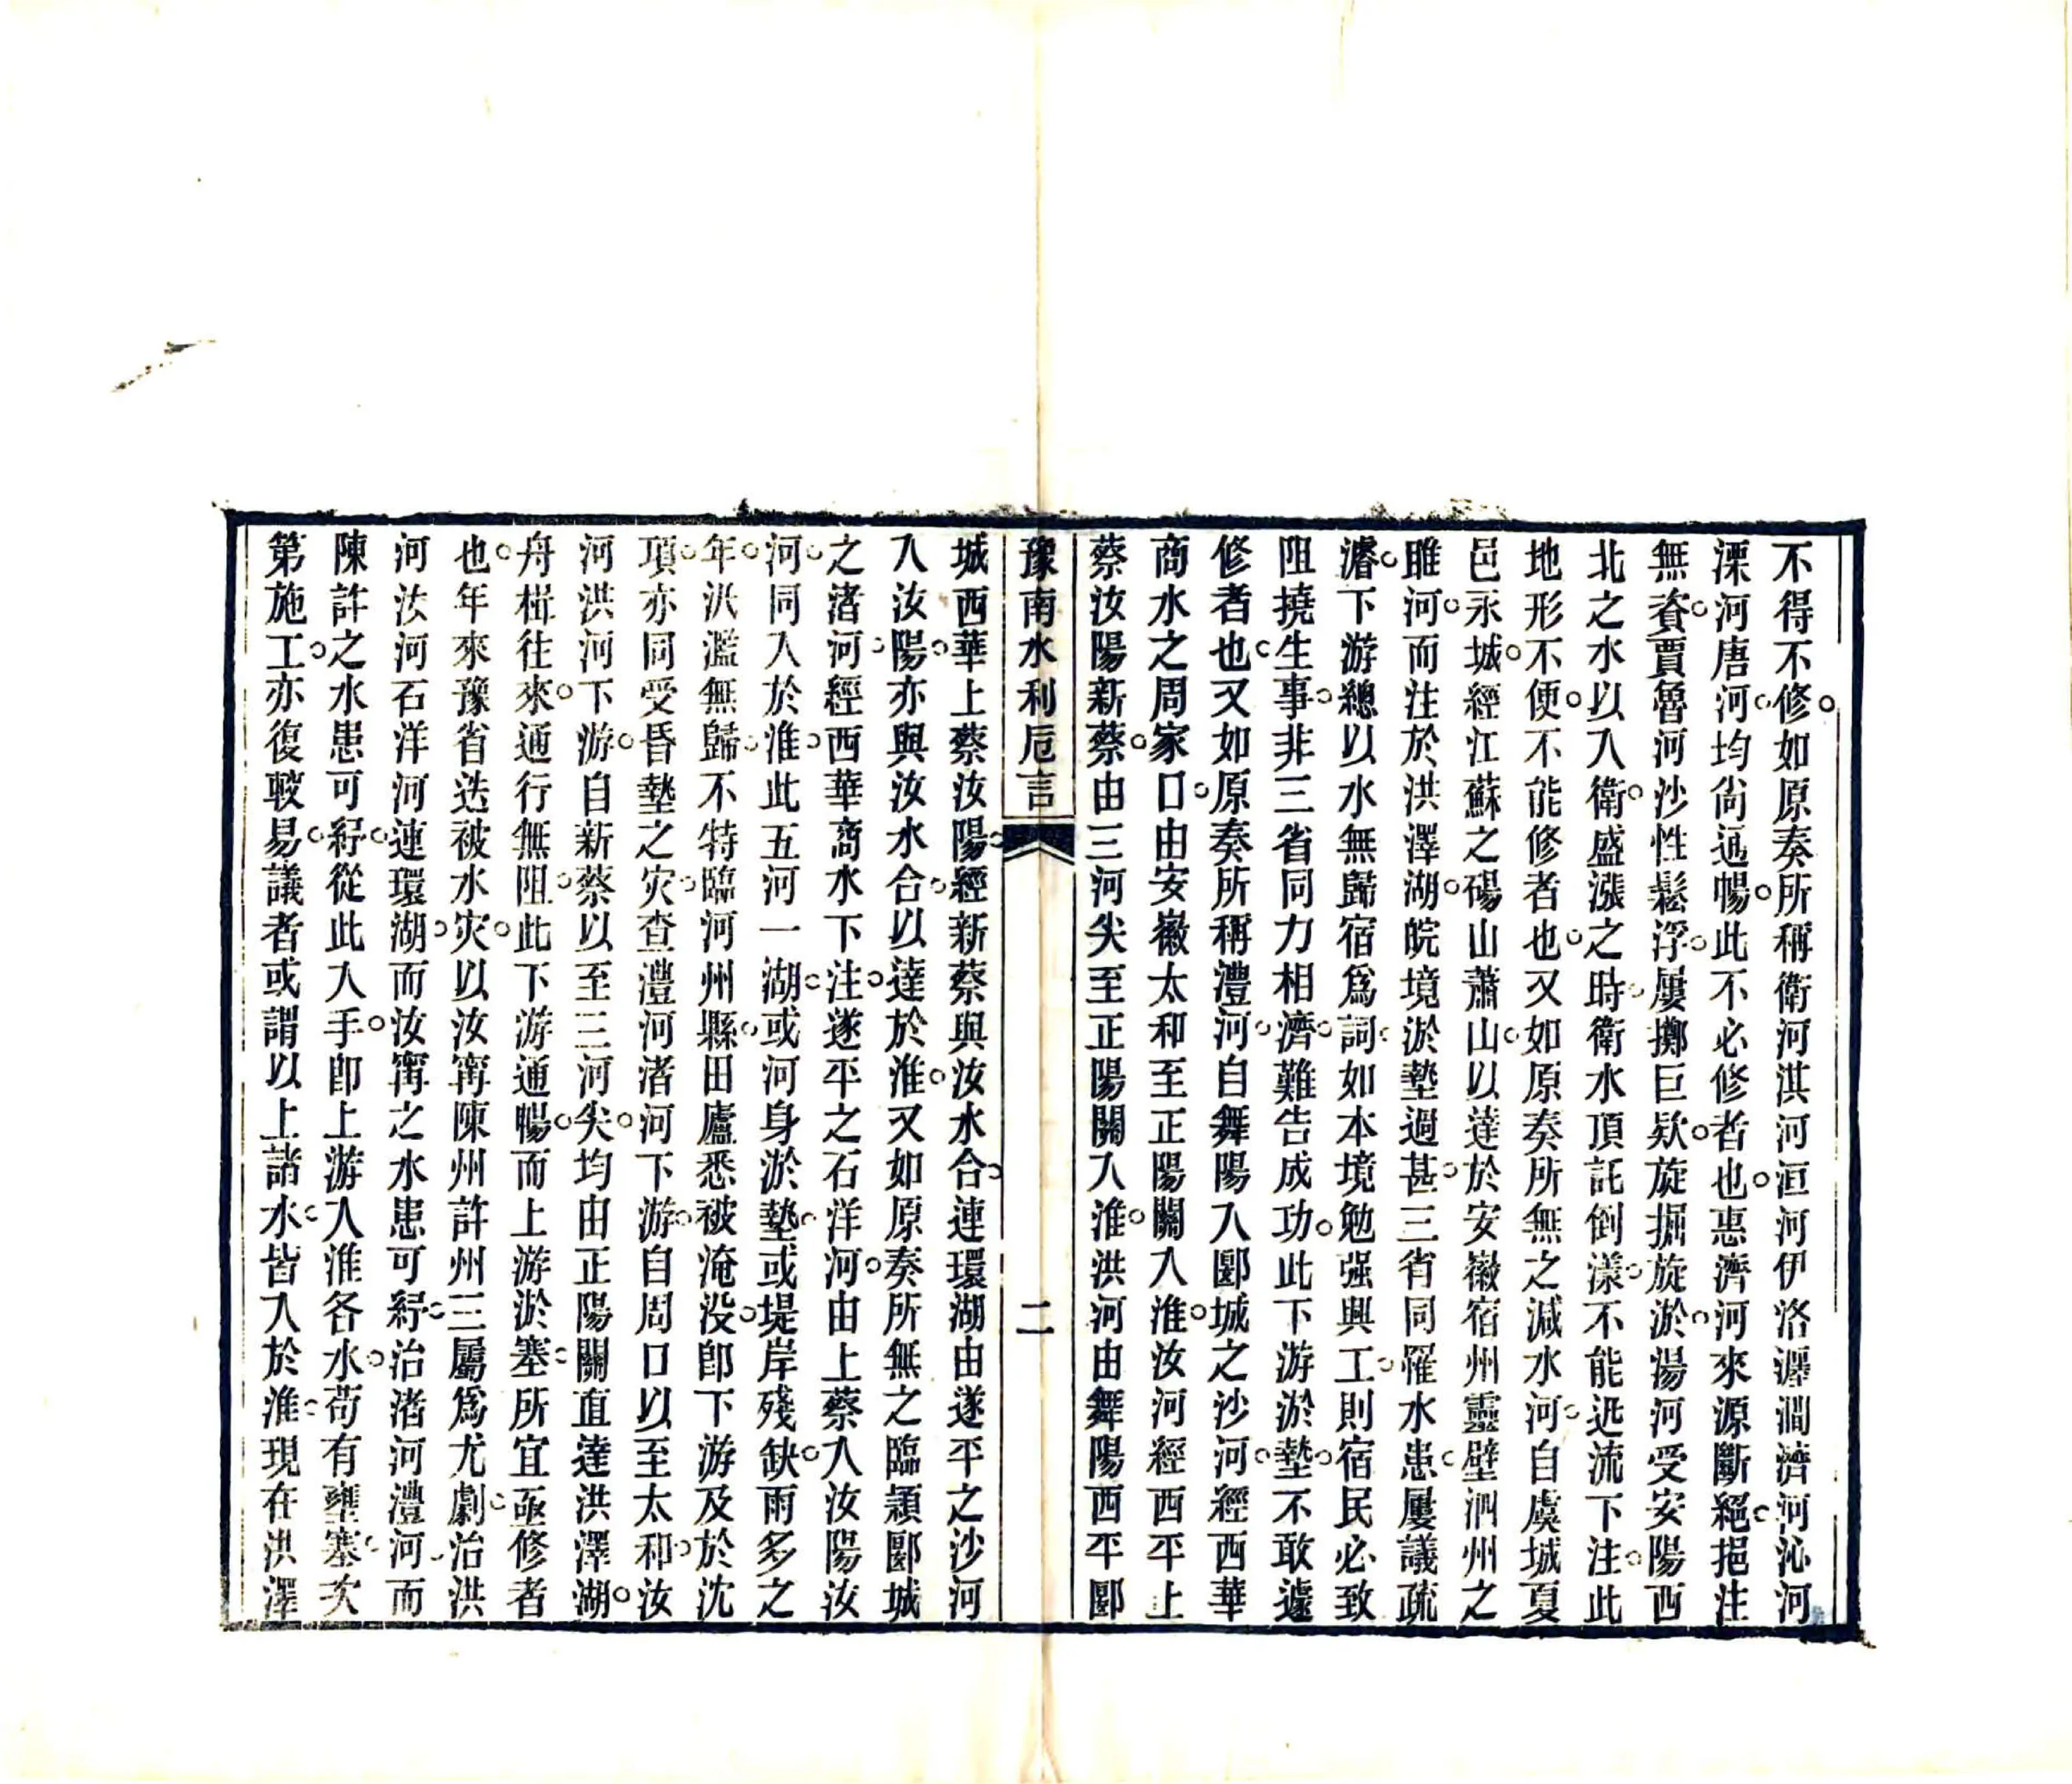 不得不修○如原奏所稱衛河淇河洹河伊洛瀍澗濟河沁河
溧河唐河○均尙通暢○此不必修者也○惠濟河來源斷絕○挹注
無資○賈魯河沙性鬆浮○屢擲巨欵○旋掘旋淤○湯河受安陽西
北之水以入衛○盛漲之時○衛水頂託倒漾○不能迅流下注○此
地形不便○不能修者也○又如原奏所無之減水河○自虞城夏
邑永城○經江蘇之碭山蕭山○以達於安徽宿州靈壁泗州之
雎河○而注於洪澤湖○皖境淤墊過甚○三省同罹水患○屢議疏
濬○下游總以水無歸宿爲詞○如本境勉强興工○則宿民必致
阻撓生事○非三省同力相濟○難告成功○此下游淤墊○不敢遽
修者也○又如原奏所稱澧河○自舞陽入郾城之沙河○經西華
商水之周家口○由安徽太和至正陽關入淮○汝河經西平上
蔡汝陽新蔡○由三河尖至正陽關入淮○洪河由舞陽西平郾
豫南水利卮言 二
城西華○上蔡汝陽○經新蔡與汝水合○連環湖由遂平之沙河
入汝陽○亦與汝水合○以達於淮○又如原奏所無之臨潁郾城
之渚河○經西華商水下注○遂平之石洋河○由上蔡入汝陽汝
河○同入於淮○此五河一湖○或河身淤墊○或堤岸殘缺○雨多之
年○汎濫無歸○不特臨河州縣○田廬悉被淹没○卽下游及於沈
項○亦同受昏墊之灾○查澧河渚河下游○自周口以至太和○汝
河洪河下游○自新蔡以至三河尖○均由正陽關直達洪澤湖○
舟楫往來○通行無阻○此下游通暢○而上游淤塞○所宜亟修者
也○年來豫省迭被水灾○以汝甯陳州許州三屬爲尤劇○治洪
河汝河石洋河連環湖○而汝甯之水患可紓○治渚河澧河○而
陳許之水患可紓○從此入手○卽上游入淮各水○苟有壅塞○次
第施工○亦復較易○議者或謂以上諸水○皆入於淮○現在洪澤